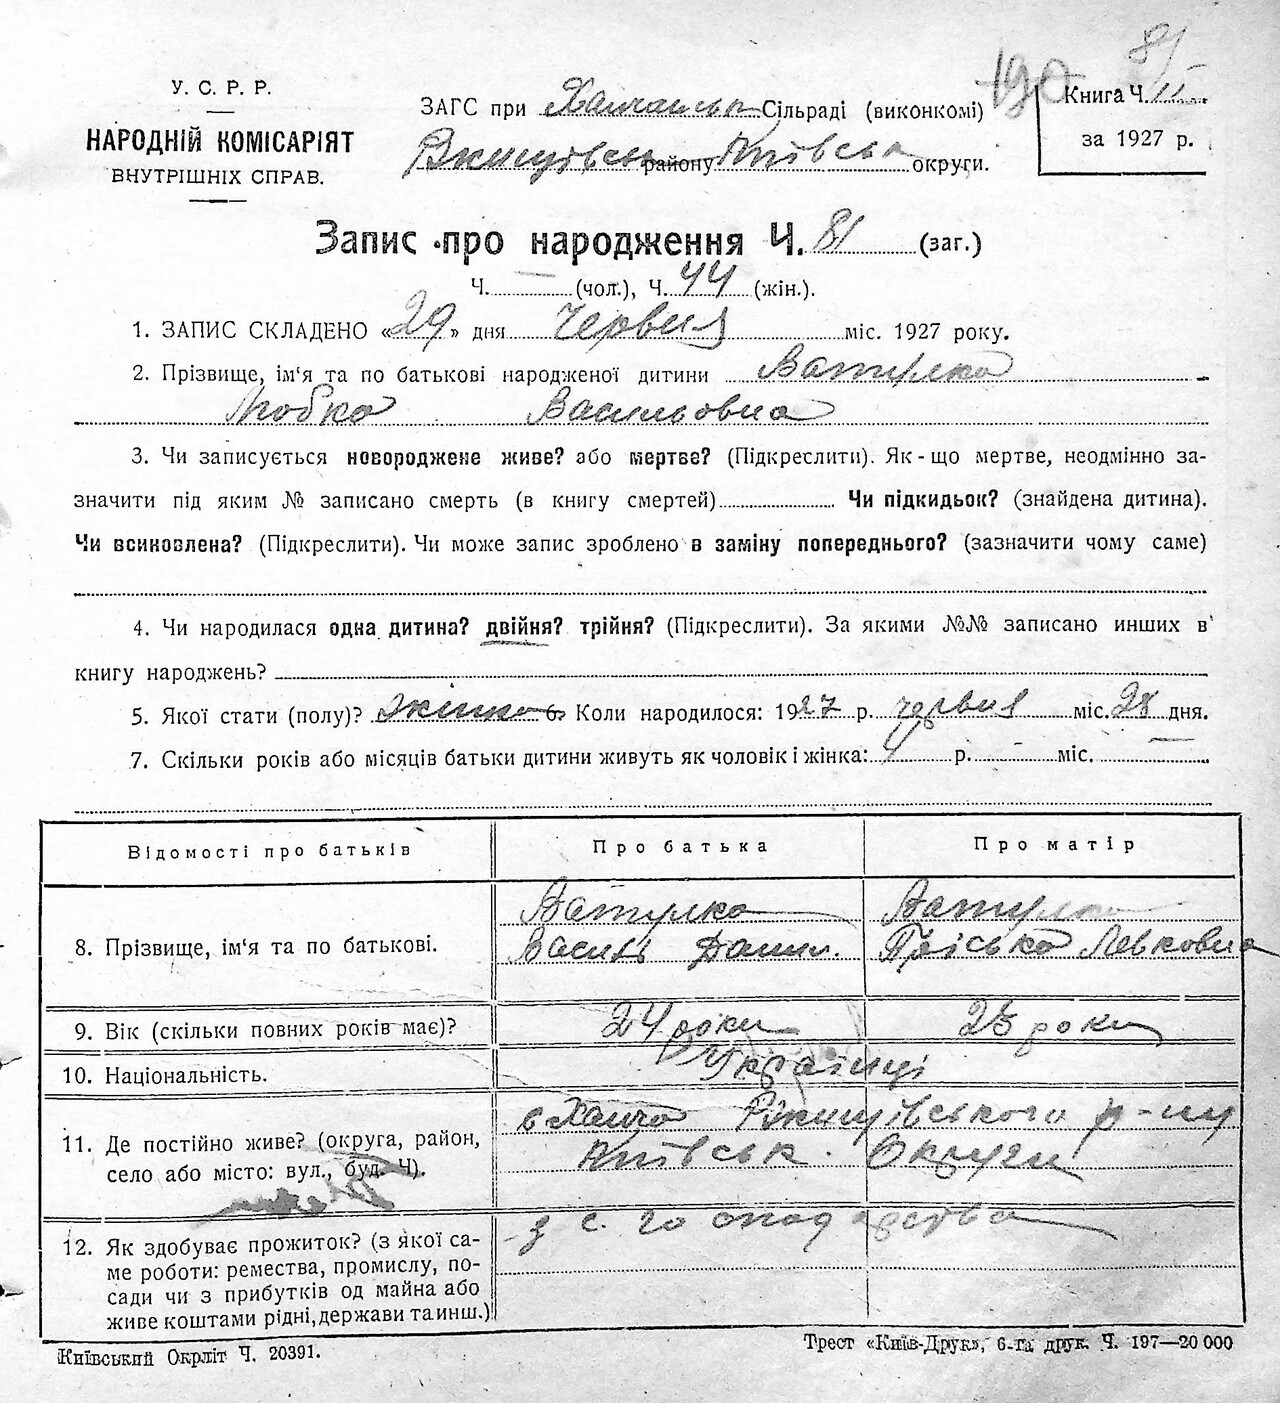 190
81
У. С. Р. Р.
НАРОДНІЙ КОМІСАРІЯТ
ВНУТРІШНІХ СПРАВ.
ЗАГС при Сільраді (виконкомі)
району Київськ округи.
Книга Ч. II
за 1927 р.
Запис про народження Ч. 81 (заг.)
Ч. — (чол.), Ч. 44 (жін.).
1. ЗАПИС СКЛАДЕНО «29» дня Червня міс. 1927 року.
2. Прізвище, ім'я та по батькові народженої дитини Ватулка
Любка Васильовна
3. Чи записується новороджене живе? або мертве? (Підкреслити). Як-що мертве, неодмінно за-
значити під яким № записано смерть (в книгу смертей) Чи підкидьок? (знайдена дитина).
Чи всиновлена? (Підкреслити). Чи може запис зроблено в заміну попереднього? (зазначити чому саме)
4. Чи народилася одна дитина? двійня? трійня? (Підкреслити). За якими №№ записано инших в
книгу народжень?
5. Якої стати (полу)? жіноч 6. Коли народилося: 1927 р. червня міс. 28 дня.
7. Скільки років або місяців батьки дитини живуть як чоловік і жінка: 4 р. — міс. —
Відомості про батьків Про батька Про матір
8. Прізвище, ім'я та по батькові. Ватулка Ватулка
Василь Данил. Пріська Левковна
9. Вік (скільки повних років має)? 24 роки 23 роки
10. Національність. Українці
11. Де постійно живе? (округа, район, с Ржищівського р-ну
село або місто: вул., буд. Ч). Київськ. Округи
12. Як здобуває прожиток? (з якої са- з с. господарства
ме роботи: ремества, промислу, по-
сади чи з прибутків од майна або
живе коштами рідні, держави та инш.)
Київський Окрліт Ч. 20391.
Трест «Київ-Друк», 6-та друк. Ч. 197—20 000